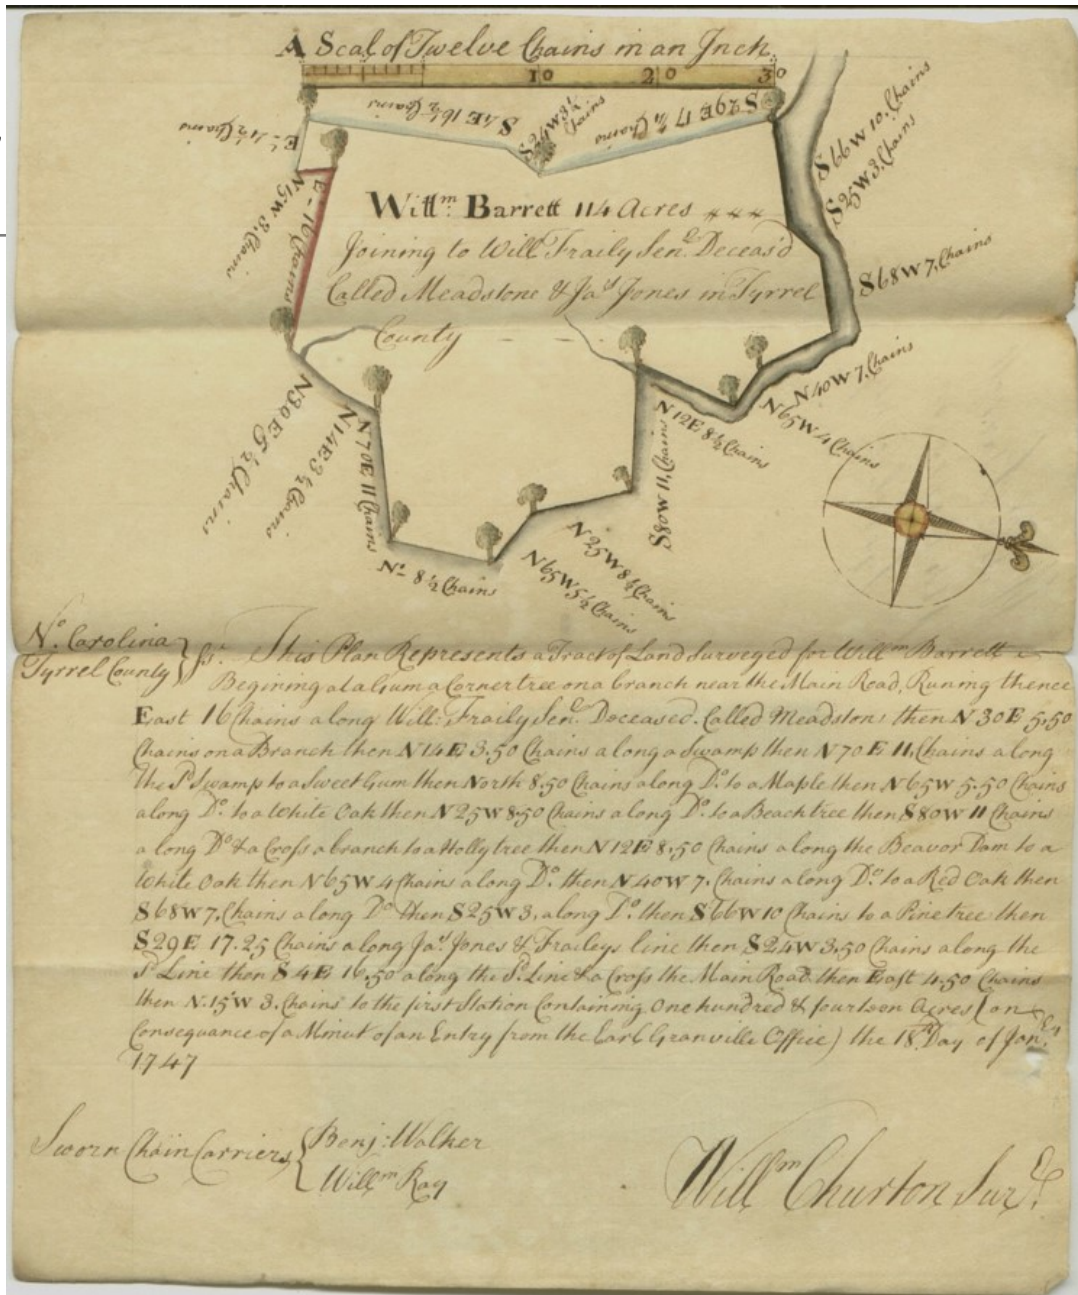 A Scal of Twelve Chains in an Inch
10 20 30
E. 4½ Chains
S 4E 16½ Chains
S 24W 3½ Chains
S 29E 17¼ Chains
S 66W 10, Chains
S 25W 3, Chains
N 15W 3, Chains
E - 16 Chains
Willm. Barrett 114 Acres
Joining to Will Fraily Senr. Deceas'd
Called Meadstone & Jas. Jones in Tyrrel
County - - -
S 68W 7, Chains
N 40W 7, Chains
N 65W 4 Chains
N 12E 8½ Chains
S 80W 11, Chains
N 25W 8½ Chains
N 65W 5½ Chains
No- 8½ Chains
N 70E 11 Chains
N 14E 3½ Chains
N 30E 5½ Chains
No. Carolina
Tyrrel County } Ss. This Plan Represents a Tract of Land Surveyed for Willm Barrett
Begining at a Gum a Corner tree on a branch near the Main Road, Runing thence
East 16 Chains along Will: Fraily Senr. Deceased. Called Meadston, then N 30E 5,50
Chains on a Branch then N 14E 3.50 Chains along a Swamp then N 70E 11, Chains along
the Sd. Swamp to a Sweet Gum then North 8.50 Chains along Do. to a Maple then N 65W 5.50 Chains
along Do. to a White Oak then N 25W 8.50 Chains along Do. to a Beach tree then S 80W 11 Chains
along Do. & a Cross a branch to a Holly tree then N 12E 8,50 Chains along the Beavor Dam to a
White Oak then N 65W 4 Chains along Do. then N 40W 7. Chains along Do. to a Red Oak then
S 68W 7, Chains along Do. then S 25W 3, along Do. then S 66W 10 Chains to a Pine tree then
S 29E 17.25 Chains along Jas. Jones & Frailys line then S 24W 3,50 Chains along the
Sd. Line then S 4E 16,50 along the Sd. Line & a Cross the Main Road then East 4.50 Chains
then N. 15W 3. Chains to the first Station Containing One hundred & fourteen Acres (on
Consequance of a Minut of an Entry from the Earl Granville Office) the 18th Day of
1747
Sworn Chain Carriers { Benj: Walker
Willm Ray
Willm Churton Surr.